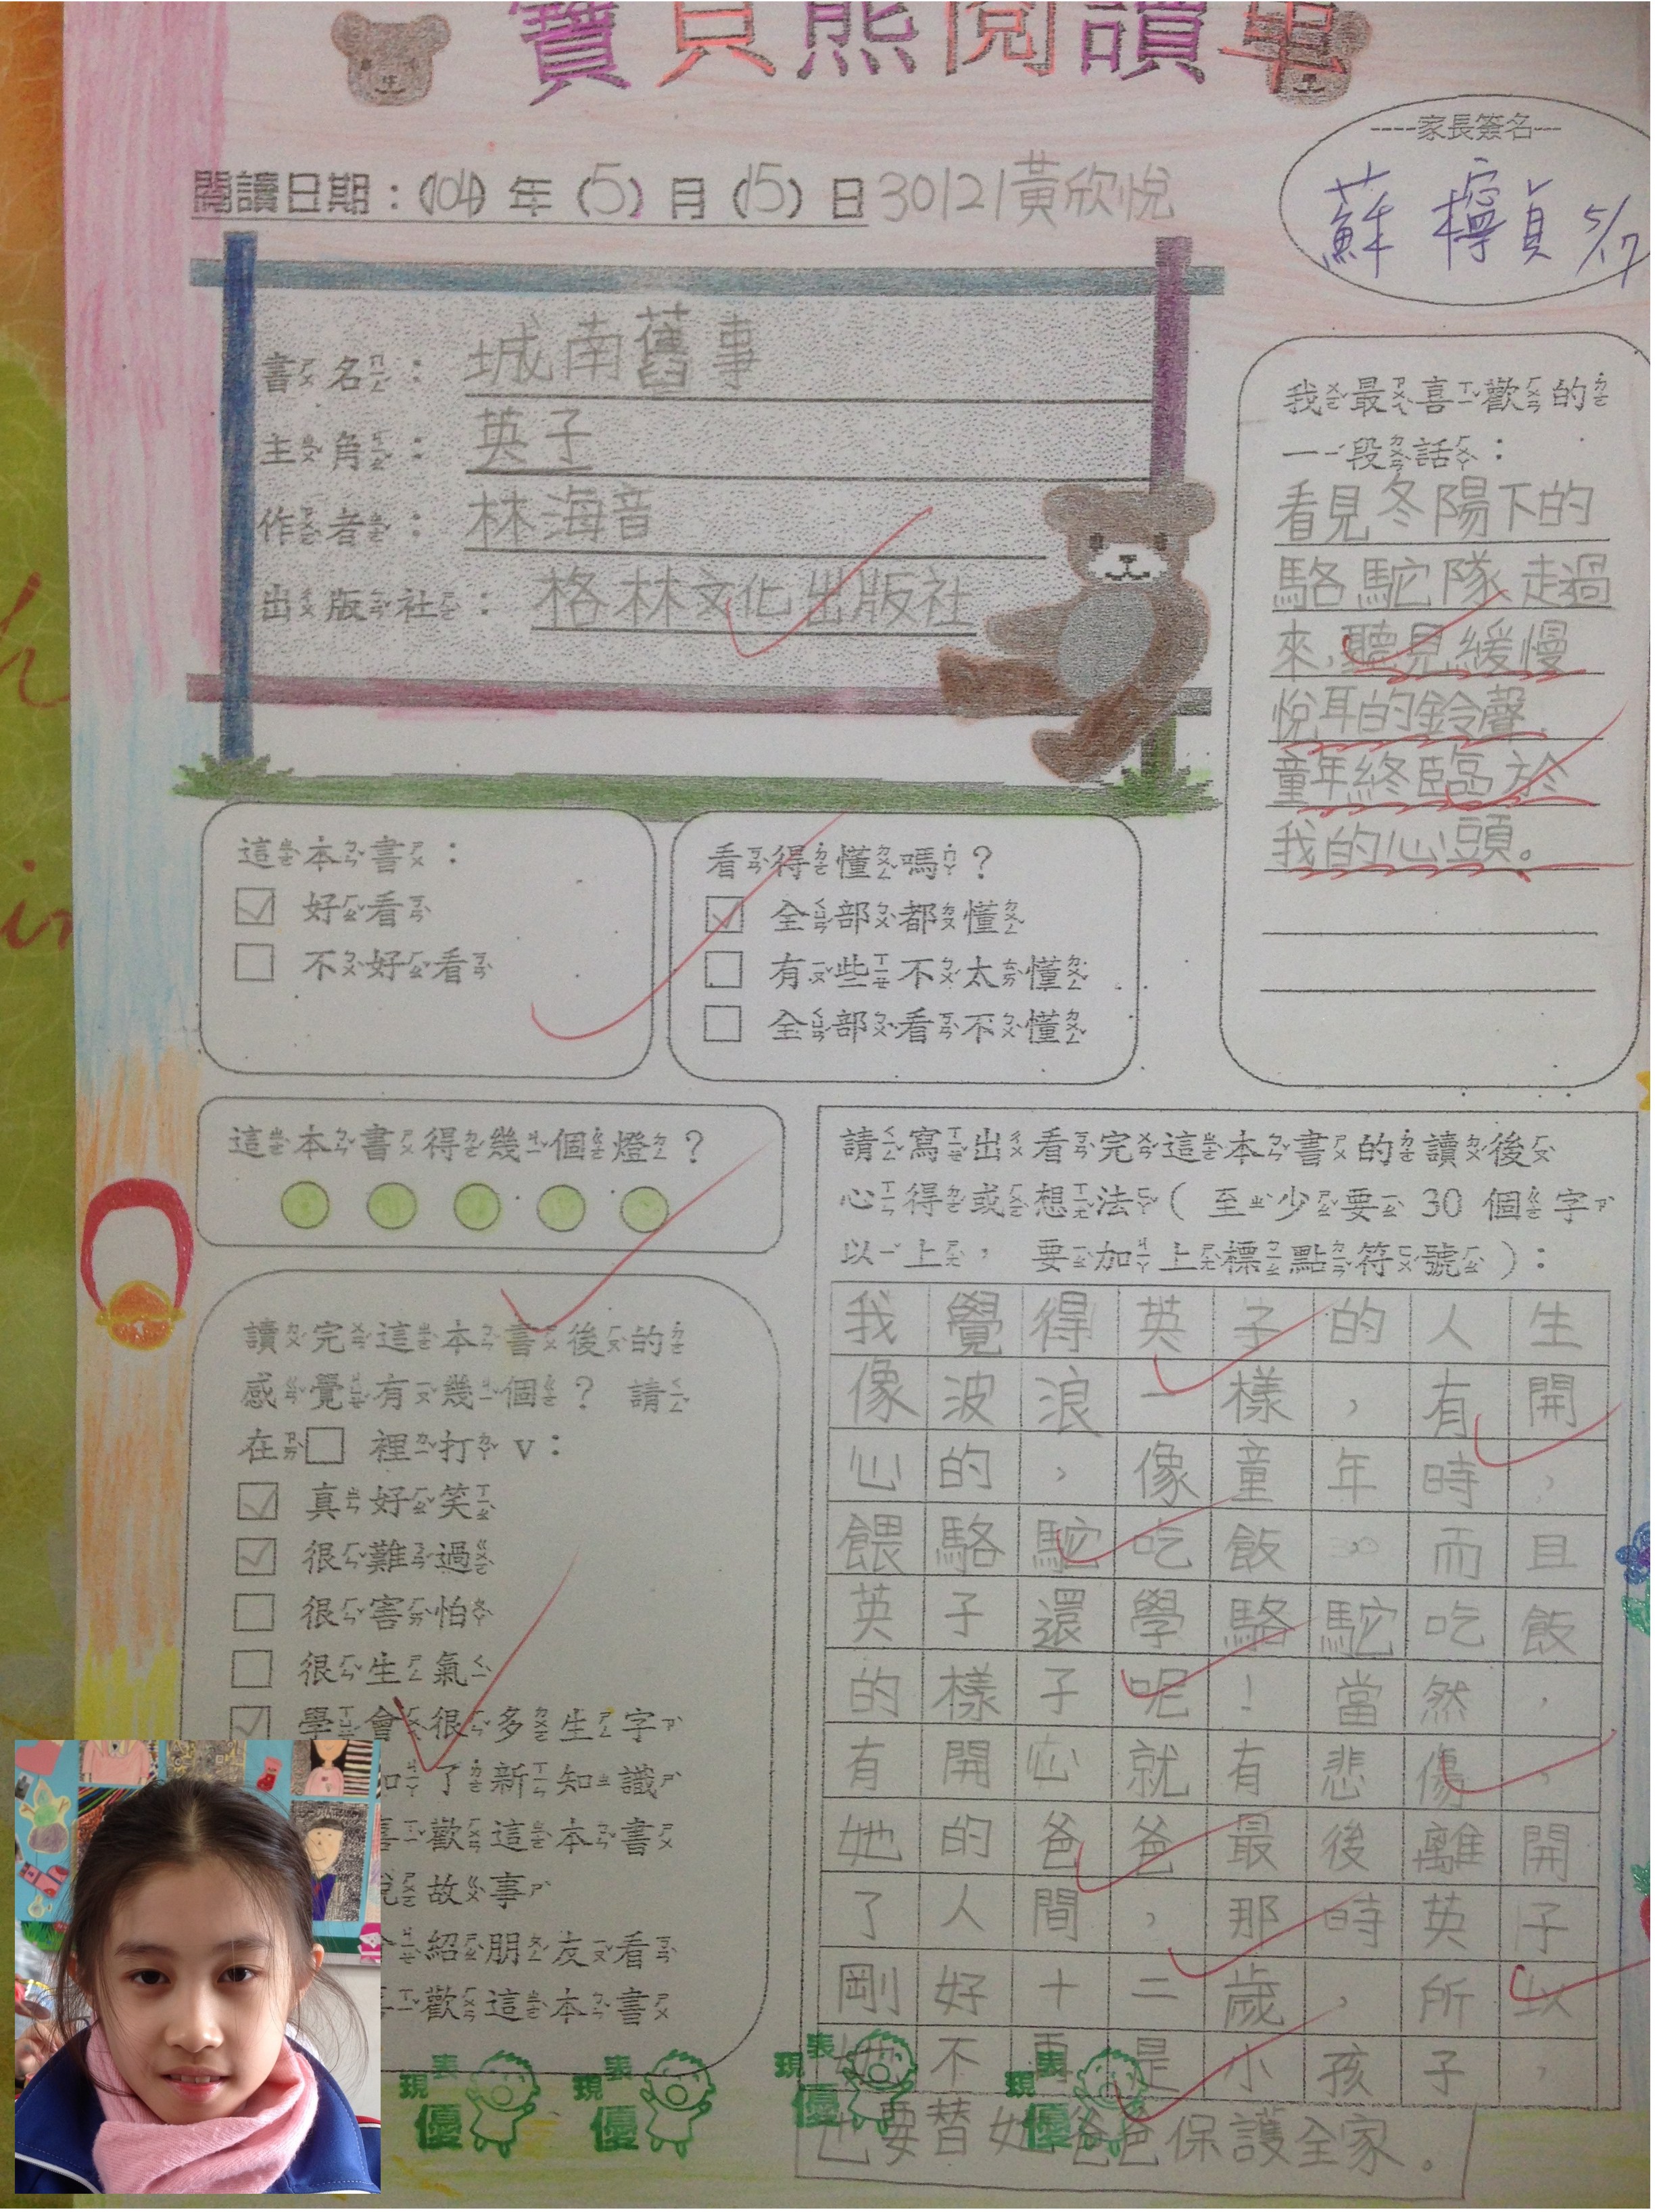 寶貝熊閱讀單
----家長簽名---
蘇檸貞 5/17
閱讀日期：(104) 年 (5) 月 (15) 日 30121黃欣悅
書名： 城南舊事
主角： 英子
作者： 林海音
出版社： 格林文化出版社
我最喜歡的
一段話：
看見冬陽下的
駱駝隊走過
來，聽見緩慢
悅耳的鈴聲，
童年終臨於
我的心頭。
這本書：
好看
不好看
看得懂嗎？
全部都懂
有些不太懂
全部看不懂
這本書得幾個燈？
讀完這本書後的
感覺有幾個？ 請
在□ 裡打 v：
真好笑
很難過
很害怕
很生氣
學會很多生字
了新知識
歡這本書
故事
紹朋友看
歡這本書
請寫出看完這本書的讀後
心得或想法( 至少要 30 個字
以上， 要加上標點符號)：
我覺得英子的人生
像波浪一樣，有開
心的，像童年時，
餵駱駝吃飯 而且
英子還學駱駝吃飯
的樣子呢！當然，
有開心就有悲傷，
她的爸爸最後離開
了人間，那時英子
剛好十二歲，所以
她不再是小孩子，
也要替她爸爸保護全家。
表現優
表現優
表現優
表現優